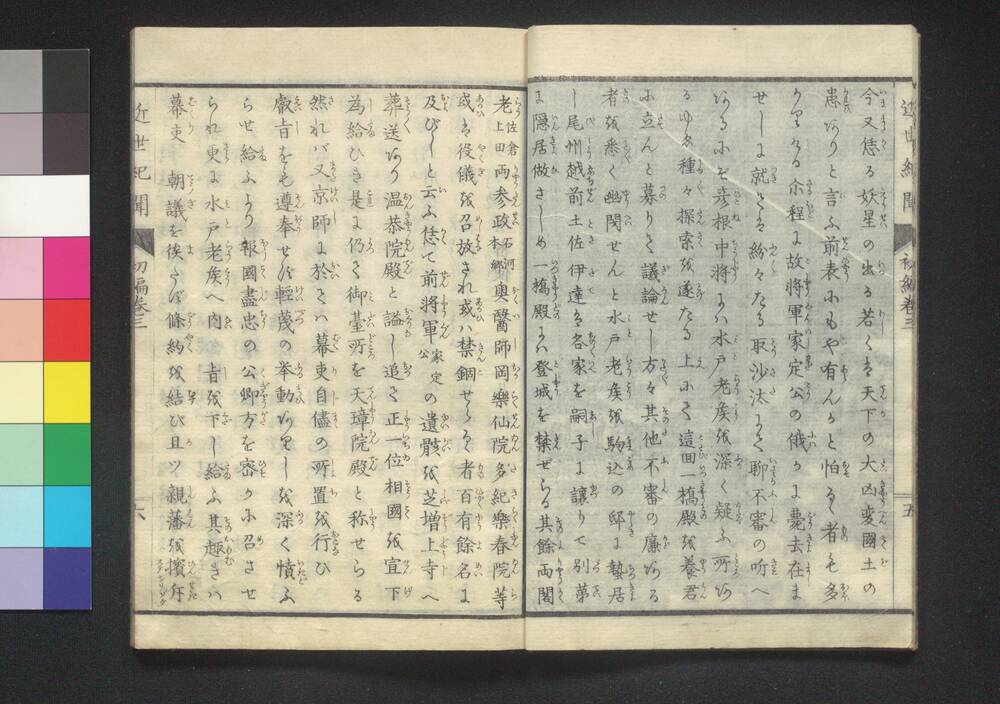 近世紀聞 初編巻三 五
今又恁る妖星の出る若くは天下の大凶変國土の
患ひありと言ふ前表にもや有んかと怕るゝ者も多
かりける尒程に故將軍家定公の俄かに薨去在ま
せしに就ては紛々たる取沙汰にて聊不審の聞へ
あるにぞ彦根中將には水戸老矦を深く疑ふ所あり
る由て種々探索を遂たる上にて這回一橋殿を養君
に立んと募りて議論せし方々其他不審の廉ある
者を悉く幽閉せんと水戸老矦を駒込の邸に蟄居
し尾州越前土佐伊達は各家を嗣子に譲りて別第
に隠居做さしめ一橋殿には登城を禁ぜらる其餘両閣
老佐倉上田両参政石河本郷奥醫師岡樂仙院多紀樂春院等
或は役儀を召放され或は禁錮せらるゝ者百有餘名に
及びしと云ふ恁て前將軍家定公の遺骸を芝増上寺へ
葬送あり温恭院殿と謚し追て正一位相國を宣下
為給ひき是に仍て御臺所を天璋院殿と称せらる
然れば又京師に於ては幕吏自儘の所置を行ひ
叡旨をも遵奉せず輕蔑の举動ありしを深く憤ふ
らせ給ふより報國盡忠の公卿方を密かに召させ
られ更に水戸老矦へ内 旨を下し給ふ其趣きは
幕吏 朝議を俟たず條約を結び且ツ親藩を擯斥
近世紀聞 初編巻三 六